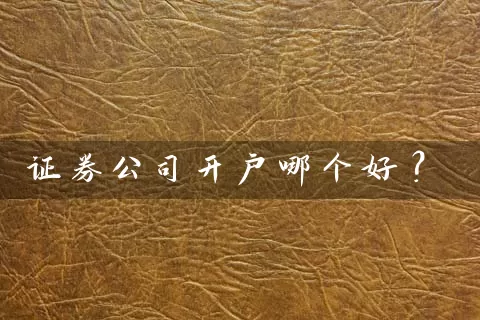 证券公司开户哪个好？